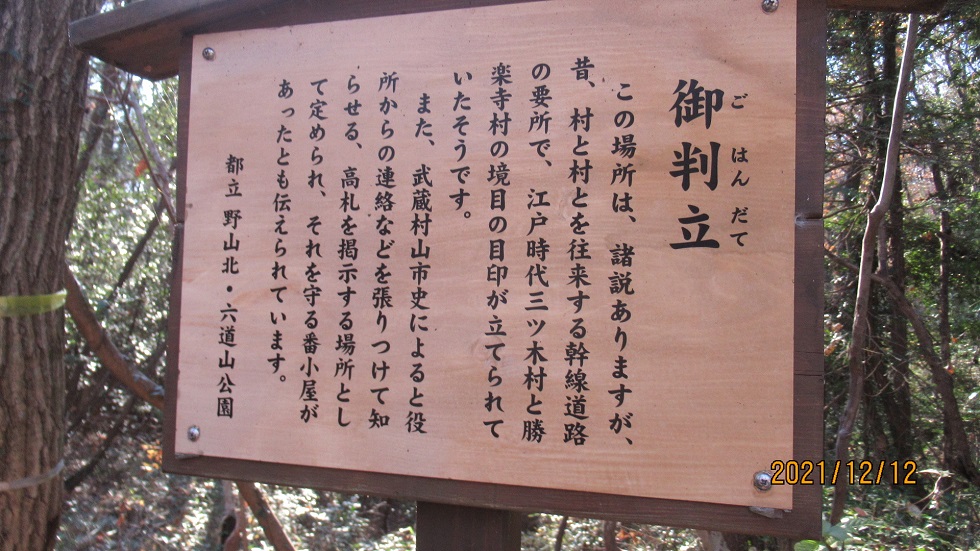 御判立
ごはんだて
この場所は、諸説ありますが、
昔、村と村とを往来する幹線道路
の要所で、江戸時代三ツ木村と勝
楽寺村の境目の目印が立てられて
いたそうです。
また、武蔵村山市史によると役
所からの連絡などを張りつけて知
らせる、高札を掲示する場所とし
て定められ、それを守る番小屋が
あったとも伝えられています。
都立 野山北・六道山公園
2021/12/12